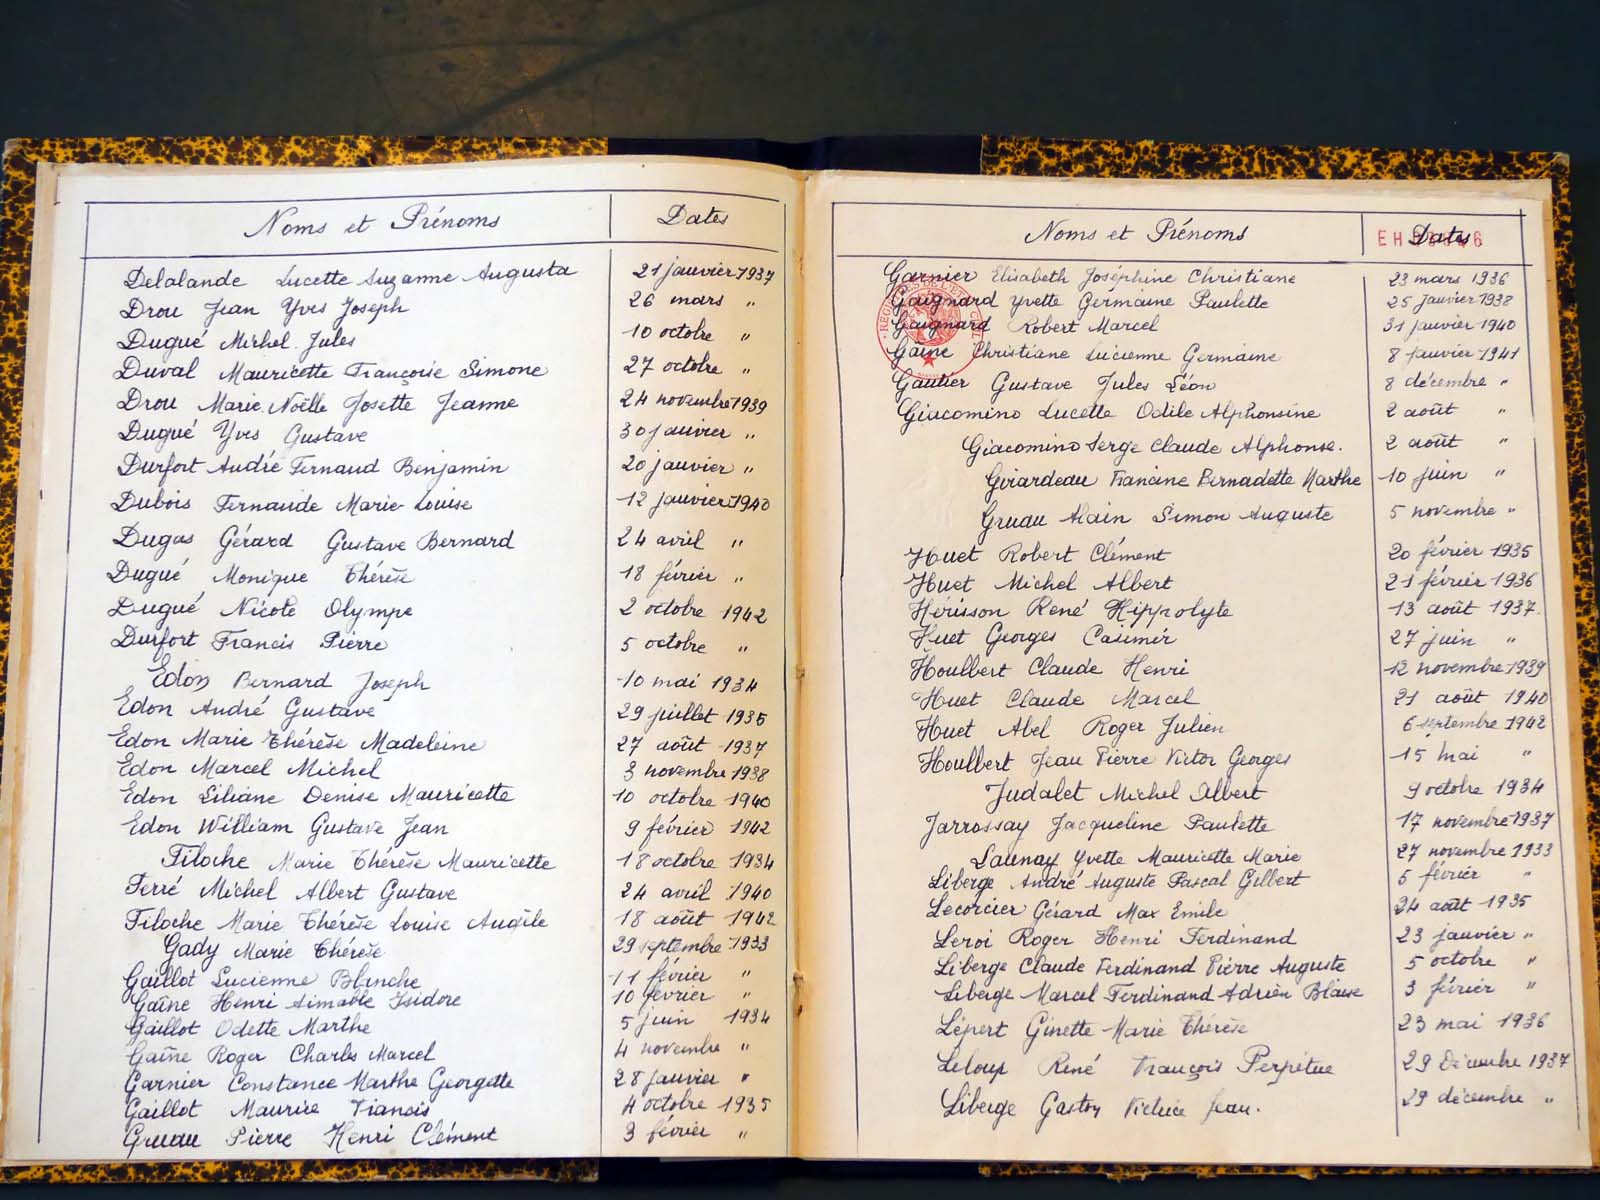 Noms et Prénoms Dates
Delalande Lucette Suzanne Augusta 21 janvier 1937
Drou Jean Yves Joseph 26 mars "
Dugué Michel Jules 10 octobre "
Duval Mauricette Françoise Simone 27 octobre "
Drou Marie-Noëlle Josette Jeanne 24 novembre 1939
Dugué Yves Gustave 30 janvier "
Durfort André Fernand Benjamin 20 janvier "
Dubois Fernande Marie-Louise 12 janvier 1940
Dugas Gérard Gustave Bernard 24 avril "
Dugué Monique Thérèse 18 février "
Dugué Nicole Olympe 2 octobre 1942
Durfort Francis Pierre 5 octobre "
Edon Bernard Joseph 10 mai 1934
Edon André Gustave 29 juillet 1935
Edon Marie Thérèse Madeleine 27 août 1937
Edon Marcel Michel 3 novembre 1938
Edon Liliane Denise Mauricette 10 octobre 1940
Edon William Gustave Jean 9 février 1942
Filoche Marie Thérèse Mauricette 18 octobre 1934
Ferré Michel Albert Gustave 24 avril 1940
Filoche Marie Thérèse Louise 18 août 1942
Gady Marie Thérèse 29 septembre 1933
Gaillot Lucienne Blanche 11 février "
Gaîne Henri Aimable Isidore 10 février "
Gaillot Odette Marthe 5 juin 1934
Gaîne Roger Charles Marcel 4 novembre "
Garnier Constance Marthe Georgette 28 janvier "
Gaillot Maurice Francis 4 octobre 1935
Gruau Pierre Henri Clément 3 février "
Noms et Prénoms Dates
Garnier Elisabeth Joséphine Christiane 23 mars 1936
Gaignard Yvette Germaine Paulette 25 janvier 1938
Gaignard Robert Marcel 31 janvier 1940
Gaîne Christiane Lucienne Germaine 8 janvier 1941
Gautier Gustave Jules Léon 8 décembre "
Giacomino Lucette Odile Alphonsine 2 août "
Giacomino Serge Claude Alphonse. 2 août "
Girardeau Francine Bernadette Marthe 10 juin "
Gruau Alain Simon Auguste 5 novembre "
Huet Robert Clément 20 février 1935
Huet Michel Albert 21 février 1936
Hérisson René Hippolyte 13 août 1937.
Huet Georges Casimir 27 juin "
Houlbert Claude Henri 12 novembre 1939
Huet Claude Marcel 21 août 1940
Huet Abel Roger Julien 6 septembre 1942
Houlbert Jean Pierre Victor Georges 15 mai "
Judalet Michel Albert 9 octobre 1934
Jarrossay Jacqueline Paulette 17 novembre 1937
Launay Yvette Mauricette Marie 27 novembre 1933
Liberge André Auguste Pascal Gilbert 5 février "
Lecorcier Gérard Max Emile 24 août 1935
Leroi Roger Henri Ferdinand 23 janvier "
Liberge Claude Ferdinand Pierre Auguste 5 octobre "
Liberge Marcel Ferdinand Adrien Blaise 3 février "
Lépert Ginette Marie Thérèse 23 mai 1936
Leloup René François Perpétue 29 Décembre 1937
Liberge Gaston Victrice Jean. 29 décembre "